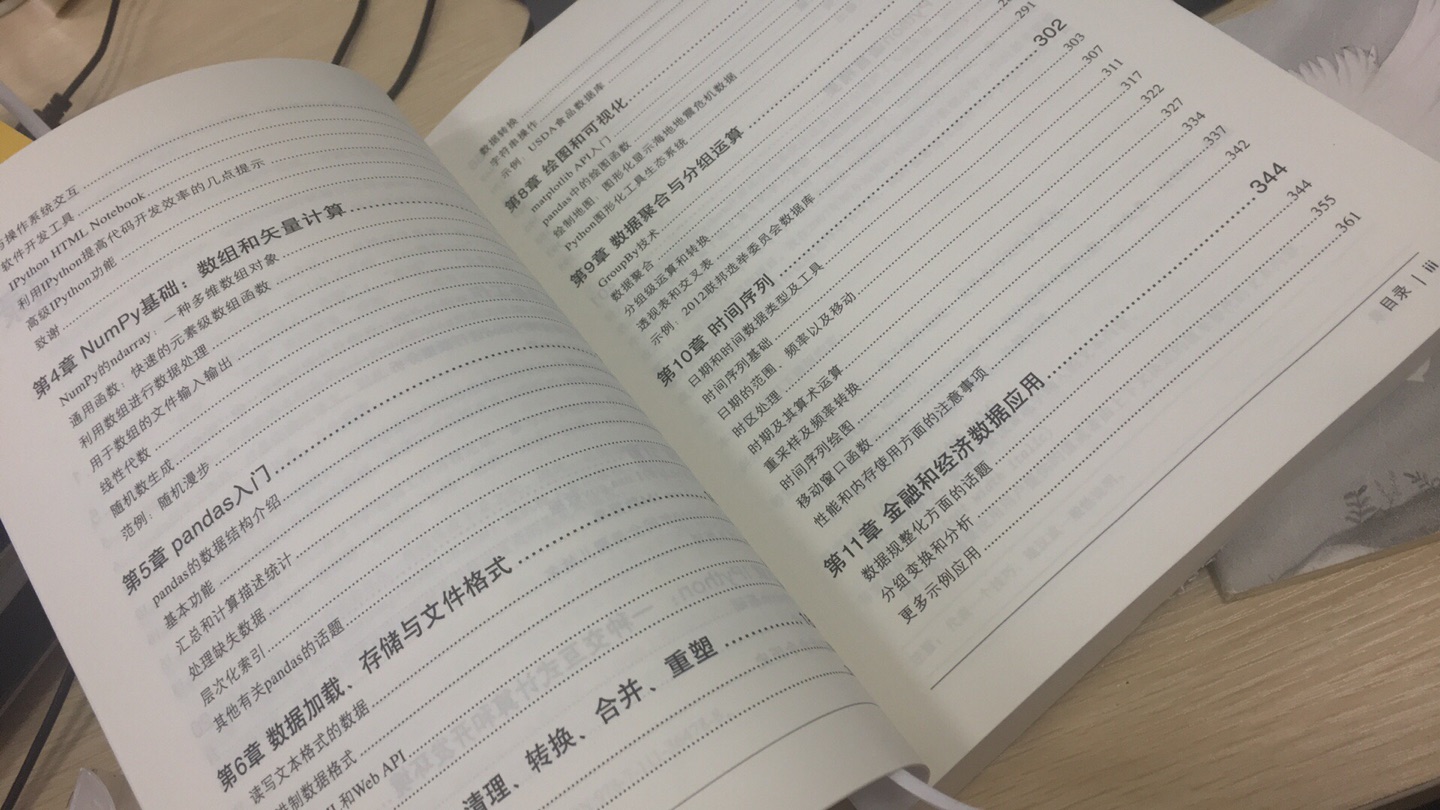 与操作系统交互
软件开发工具
IPython HTML Notebook
利用IPython提高代码开发效率的几点提示
高级IPython功能
致谢
第4章 NumPy基础：数组和矢量计算
NumPy的ndarray：一种多维数组对象
通用函数：快速的元素级数组函数
利用数组进行数据处理
用于数组的文件输入输出
线性代数
随机数生成
范例：随机漫步
第5章 pandas入门
pandas的数据结构介绍
基本功能
汇总和计算描述统计
处理缺失数据
层次化索引
其他有关pandas的话题
第6章 数据加载、存储与文件格式
读写文本格式的数据
进制数据格式
和Web API
清理、转换、合并、重塑
数据转换
字符串操作
示例：USDA食品数据库
第8章 绘图和可视化
matplotlib API入门
pandas中的绘图函数
绘制地图：图形化显示海地地震危机数据
Python图形化工具生态系统 291
第9章 数据聚合与分组运算
GroupBy技术
数据聚合
分组级运算和转换
透视表和交叉表
示例：2012联邦选举委员会数据库
第10章 时间序列 302
日期和时间数据类型及工具 303
时间序列基础 307
日期的范围、频率以及移动 311
时区处理 317
时期及其算术运算 322
重采样及频率转换 327
时间序列绘图 334
移动窗口函数 337
性能和内存使用方面的注意事项 342
第11章 金融和经济数据应用 344
数据规整化方面的话题 344
分组变换和分析 355
更多示例应用 361
目录 | iii